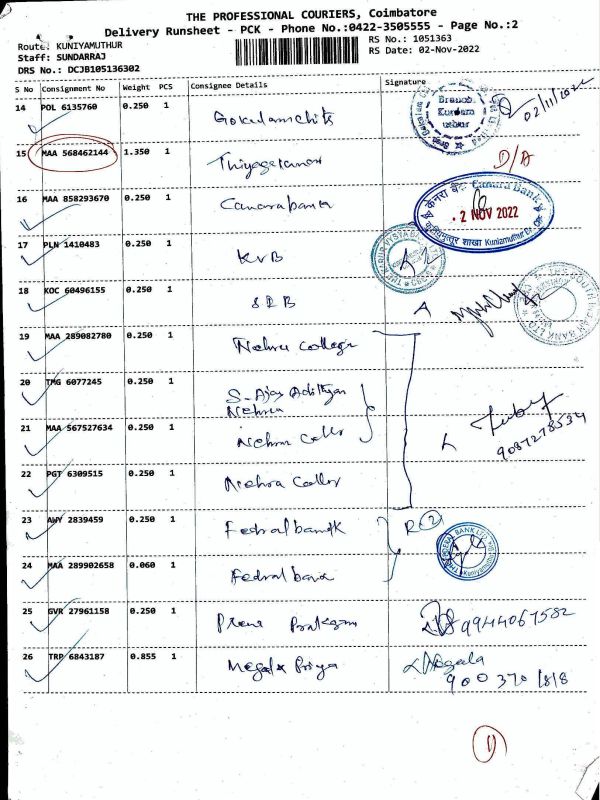 THE PROFESSIONAL COURIERS, Coimbatore
Delivery Runsheet - PCK - Phone No.:0422-3505555 - Page No.:2
Route: KUNIYAMUTHUR
RS No.: 1051363
Staff: SUNDARRAJ
RS Date: 02-Nov-2022
DRS No.: DCJB105136302
S No Consignment No Weight PCS Consignee Details Signature
14 POL 6135760 0.250 1 Gokulamchits 02/11/2022
Branch
15 MAA 568462144 1.350 1 D/A
16 MAA 858293670 0.250 1 Canarabank
Canara Bank
2 NOV 2022
Kuniamuthur
17 PLN 1410483 0.250 1 KVB
18 KOC 60496155 0.250 1 SIB
19 MAA 289082780 0.250 1 Nehru College
20 TMG 6077245 0.250 1 S. Ajay Adithyan
Nehru
21 MAA 567527634 0.250 1 Nehru
9087278534
22 PGT 6309515 0.250 1
23 AWY 2839459 0.250 1 Fedralbank
THE FEDERAL BANK LTD
24 MAA 289902658 0.060 1 Fedralbank
25 GVR 27961158 0.250 1 Prakasam 9944067582
26 TRP 6843187 0.855 1 Megala Priya Megala
900 370 1818
1